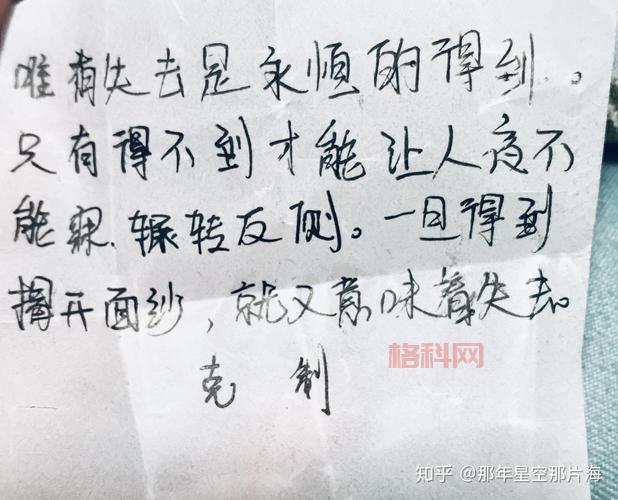 唯有失去是永恒的得到。
只有得不到才能让人夜不
能寐、辗转反侧。一旦得到
揭开面纱，就又意味着失去。
克 制
格科网
知乎 @那年星空那片海